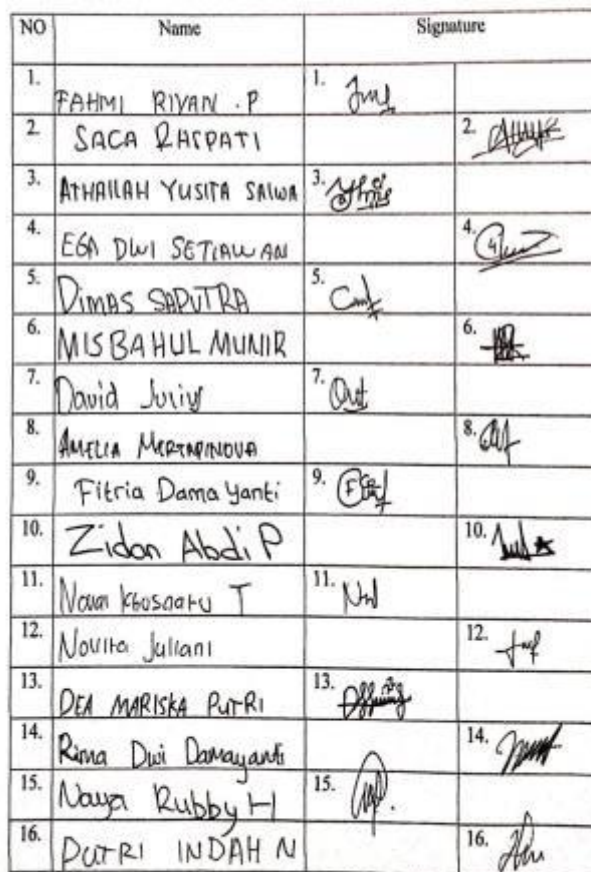 NO Name Signature
1. FAHMI RIYAN . P 1.
2. SACA RHIPATI 2.
3. ATHAILAH YUSITA SALWA 3.
4. EGA DWI SETIAWAN 4.
5. DIMAS SAPUTRA 5.
6. MISBAHUL MUNIR 6.
7. David Julius 7.
8. AMELIA 8.
9. Fitria Damayanti 9.
10. Zidan Abdi P 10.
11. T 11.
12. Novita Juliani 12.
13. DEA MARISKA PUTRI 13.
14. Rima Dwi Damayanti 14.
15. Naya Rubby H 15.
16. PUTRI INDAH N 16.